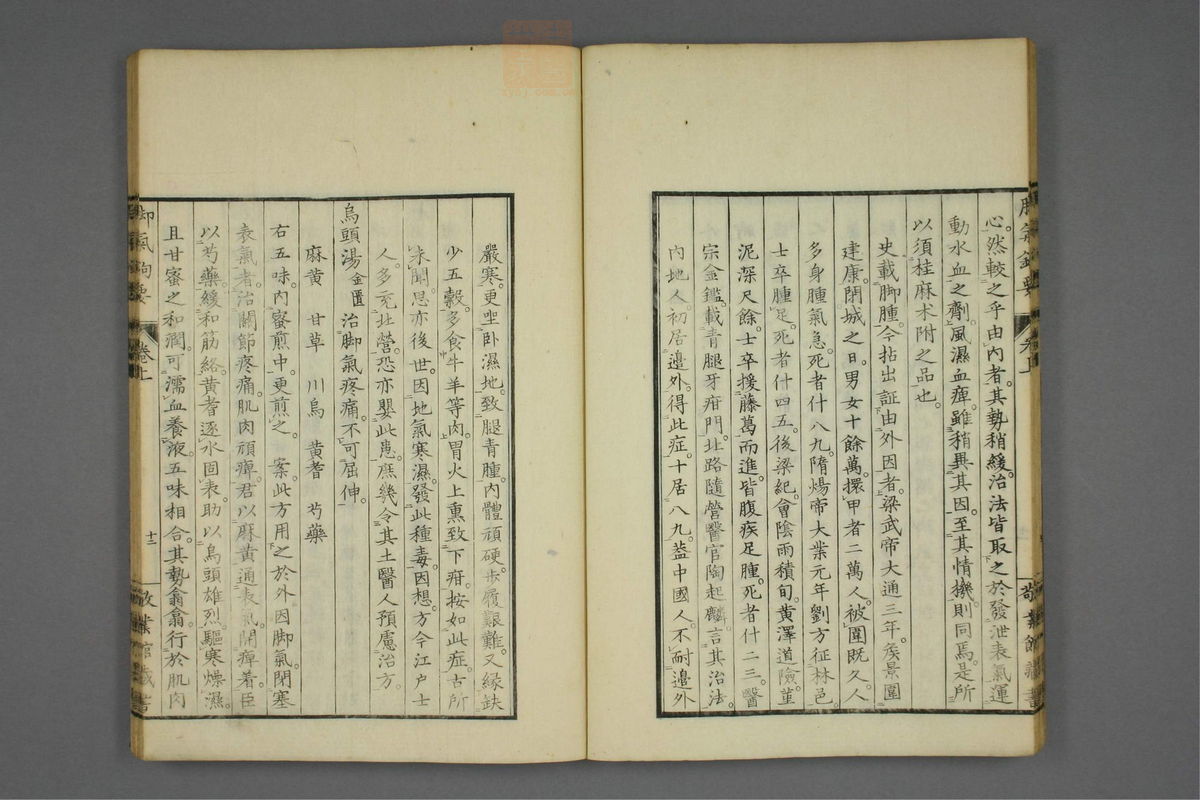 心。然較之乎由內者。其勢稍緩。治法皆取之於發泄表氣運
動水血之劑。風濕血痺。雖稍異其因。至其情機。則同焉。是所
以須桂麻朮附之品也。
史載脚腫。今拈出証由外因者。梁武帝大通三年。矦景圍
建康。閉城之日。男女十餘萬。擐甲者二萬人。被圍既久。人
多身腫氣急。死者什八九。隋煬帝大業元年劉方征林邑。
士卒腫足。死者什四五。後梁紀。會陰雨積旬。黄澤道險。堇
泥深尺餘。士卒援藤葛而進。皆腹疾足腫。死者什二三。醫
宗金鑑。載青腿牙疳門。北路隨營醫官陶起麟。言其治法。
內地人。初居邉外。得此症。十居八九。葢中國人。不耐邉外
嚴寒。更坐卧濕地。致腿青腫。內體頑硬。步履艱難。又縁缺
少五穀。多食牛羊等肉。胃火上熏。致下疳。按如此症。古所
未聞。思亦後世。因地氣寒濕。發此種毒。因想。方今江戶士
人。多充北營。恐亦嬰此患。庶幾令其土醫人預慮治方。
烏頭湯 金匱 治脚氣疼痛。不可屈伸。
麻黄 甘草 川烏 黄耆 芍藥
右五味。內蜜煎中。更煎之。 案。此方用之於外因脚氣。閉塞
表氣者。治關節疼痛。肌肉頑痺。君以麻黄通表氣。開痺着。臣
以芍藥。緩和筋絡。黄耆逐水固表。助以烏頭雄烈。驅寒燥濕。
且甘蜜之和潤。可濡血養液。五味相合。其勢翕翕。行於肌肉
脚氣鉤要 卷上 十二 敬業館藏書